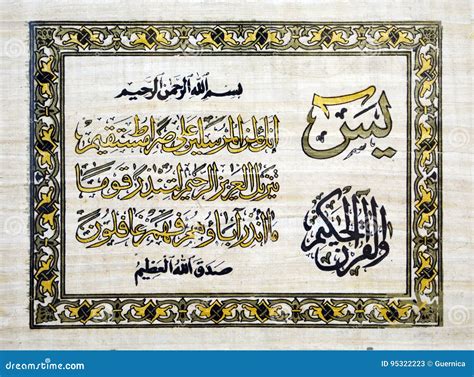 بسم الله الرحمن الرحيم
يس
والقرآن الحكيم
إنك لمن المرسلين على صراط مستقيم
تنزيل العزيز الرحيم لتنذر قوما
ما أنذر آباؤهم فهم غافلون
صدق الله العظيم
dreamstime.com
ID 95322223 © Guernica